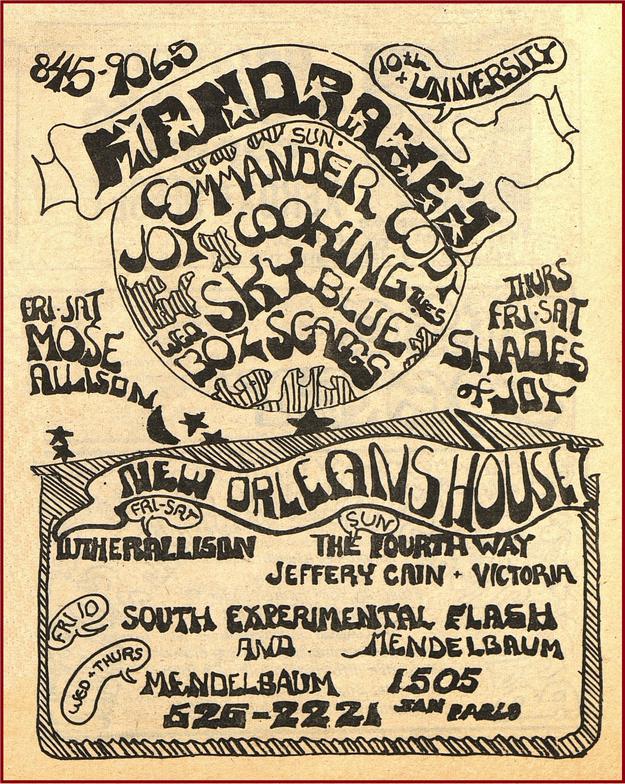 845-9065
10th
+ UNIVERSITY
MANDRAKE'S
SUN.
COMMANDER CODY
JOY OF COOKING
TUES
SKY BLUE
WED
BOZ SCAGGS
FRI·SAT
MOSE
ALLISON
THURS
FRI·SAT
SHADES
of JOY
NEW ORLEANS HOUSE
FRI-SAT
LUTHER ALLISON
SUN
THE FOURTH WAY
JEFFERY CAIN + VICTORIA
FRI 10
SOUTH EXPERIMENTAL FLASH
AND MENDELBAUM
WED + THURS
MENDELBAUM
1505
SAN PABLO
526-2221